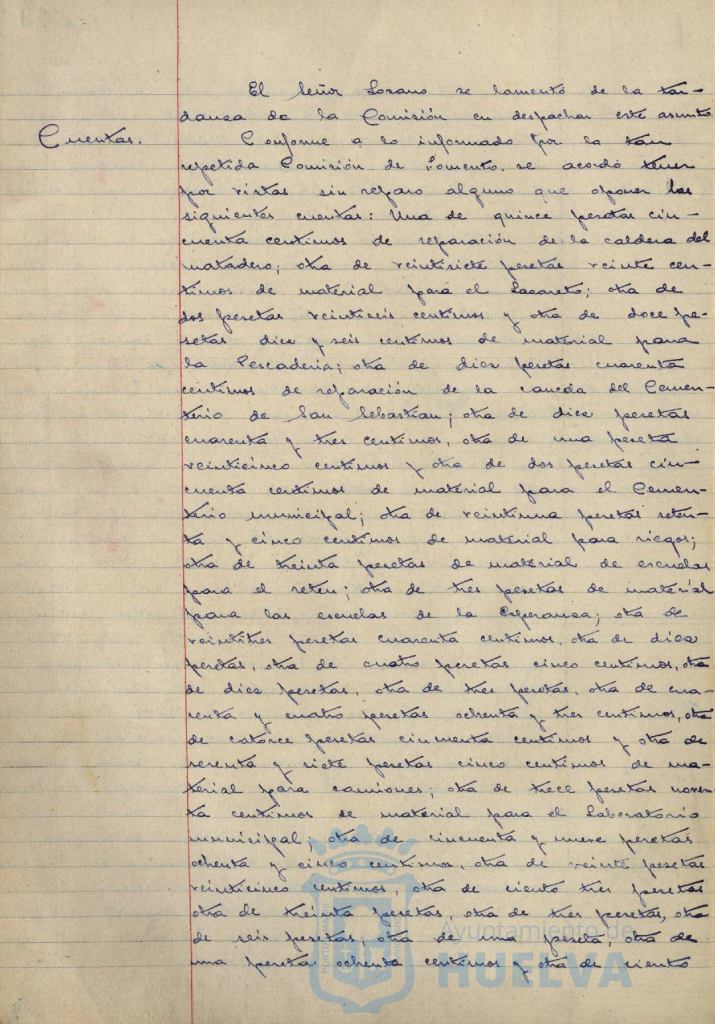 El Señor Lozano se lamentó de la tar-
danza de la Comisión en despachar este asunto.
Cuentas.
Conforme a lo informado por la tan
repetida Comisión de Fomento, se acordó tener
por vistas sin reparo alguno que oponer las
siguientes cuentas: Una de quince pesetas cin-
cuenta centimos de reparación de la caldera del
matadero; otra de veintisiete pesetas veinte cen-
timos de material para el Lazareto; otra de
dos pesetas veintiseis centimos y otra de doce pe-
setas diez y seis centimos de material para
la Pescaderia; otra de diez pesetas cuarenta
centimos de reparación de la caneda del Cemen-
terio de San Sebastian; otra de diez pesetas
cuarenta y tres centimos, otra de una peseta
veinticinco centimos y otra de dos pesetas cin-
cuenta centimos de material para el Cemen-
terio municipal; otra de veintiuna pesetas seten-
ta y cinco centimos de material para riegos;
otra de treinta pesetas de material de escuelas
para el reten; otra de tres pesetas de material
para las escuelas de la Esperanza; otra de
veintitres pesetas cuarenta centimos, otra de diez
pesetas, otra de cuatro pesetas cinco centimos, otra
de diez pesetas, otra de tres pesetas, otra de cua-
renta y cuatro pesetas ochenta y tres centimos, otra
de catorce pesetas cincuenta centimos y otra de
y siete pesetas cinco centimos de ma-
terial para camiones; otra de trece pesetas noven-
ta centimos de material para el Laboratorio
municipal; otra de cincuenta y nueve pesetas
ochenta y cinco centimos, otra de veinte pesetas
veinticinco centimos, otra de ciento tres pesetas
otra de treinta pesetas, otra de tres pesetas, otra
de seis pesetas, otra de una peseta, otra de
una peseta ochenta centimos y otra de ciento
Ayuntamiento de
HUELVA